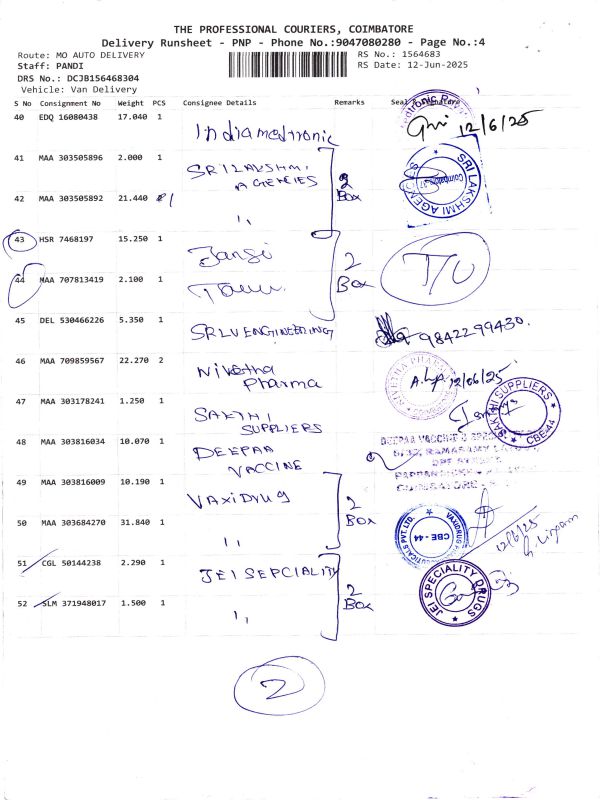 THE PROFESSIONAL COURIERS, COIMBATORE
Delivery Runsheet - PNP - Phone No.:9047080280 - Page No.:4
Route: MO AUTO DELIVERY
Staff: PANDI
DRS No.: DCJB156468304
Vehicle: Van Delivery
RS No.: 1564683
RS Date: 12-Jun-2025
S No Consignment No Weight PCS Consignee Details Remarks Seal
40 EDQ 16080438 17.040 1 Indiamedtronic 12/6/25
41 MAA 303505896 2.000 1 SRILAKSHMI AGENCIES
2 Box
SRI LAKSHMI AGENCIES
42 MAA 303505892 21.440 1 ,,
43 HSR 7468197 15.250 1 Jansi
2 Box
T/U
44 MAA 707813419 2.100 1
45 DEL 530466226 5.350 1 SRLV ENGINEERING 9842299430.
46 MAA 709859567 22.270 2 Nivetha Pharma
NIVETHA PHARMA
12/06/25
47 MAA 303178241 1.250 1 SAKTHI SUPPLIERS
SAKTHI SUPPLIERS
CBE-44
48 MAA 303816034 10.070 1 DEEPAA VACCINE
DEEPAA VACCINE
49 MAA 303816009 10.190 1 VAXIDRUG
2 Box
50 MAA 303684270 31.840 1 ,,
CBE - 44
12/6/25
51 CGL 50144238 2.290 1 JEI SEPCIALITY
2 Box
JEI SPECIALITY DRUGS
52 SLM 371948017 1.500 1 ,,
2